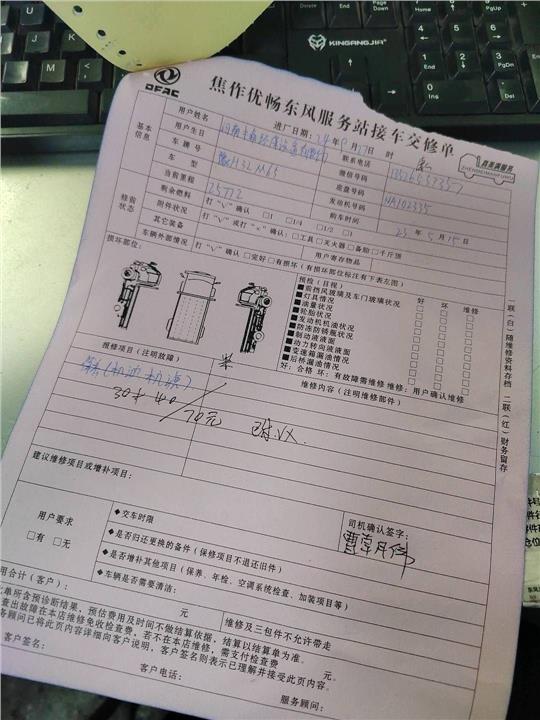 KINGANGJIA
DFAC
焦作优畅东风服务站接车交修单
真美满服务
基本信息
用户姓名
进厂日期：24年9月27日 时
用户生日
联系电话
车牌号
豫H32M65
微信号码
车型
底盘号码
当前里程
25772
发动机号码
NA102335
修前状态
剩余燃料
打“V”确认 □1 □1/4 □1/2 □1
购车时间
23年5月15日
附件状况
打“V”或打“×”确认：□工具□灭火器□备胎□千斤顶
其它装备
用户寄存物品
车辆外部情况
打“V”确认 □完好□有损坏(有损坏部位标注有下表左图)
损坏部位：
预检(目视) 好 坏 维修
■前挡风玻璃及车门玻璃状况
■灯具情况
■油量状况
■轮胎状况
■发动机机油状况
■防冻防锈瓶状况
■制动液液面
■动力转向液液面
■变速箱漏油情况
■后桥漏油情况
好：合格 坏：有故障需维修 维修：用户确认维修
报修项目(注明故障)
维修内容(注明维修部件)
(机油 机滤)
30+40
70元
建议维修项目或增补项目：
用户要求
□有 □无
◆交车时限
◆是否归还更换的备件(保修项目不退还旧件)
◆是否增补其他项目(保养、年检、空调系统检查、加装项目等)
◆车辆是否需要清洁：
司机确认签字：
用合计(客户)： 元
维修及三包件不允许带走
单所含预诊断结果，预估费用及时间不做结算依据，结算以结算单为准。
查出故障在本店维修免收检查费，若不在本店维修，需支付检查费 元。
务顾问已将此页内容详细向客户说明，客户签名则表示已理解并接受此页内容。
客户签名：
客户电话：
服务顾问：
一联(白)随维修资料存档 二联(红)财务留存